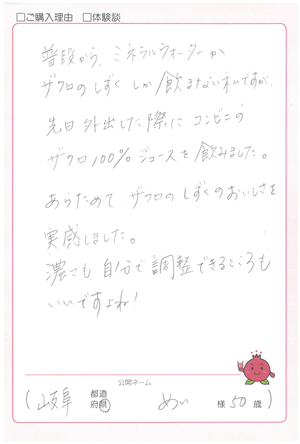 □ご購入理由 □体験談
普段から、ミネラルウォーターか
ザクロのしずく しか 飲まない私ですが、
先日 外出した際に コンビニの
ザクロ100% ジュースを 飲みました。
あらためて ザクロのしずくのおいしさを
実感しました。
濃さも 自分で 調整できるところも
いいですよね!
公開ネーム
(岐阜 都道府県 めい 様 50 歳)